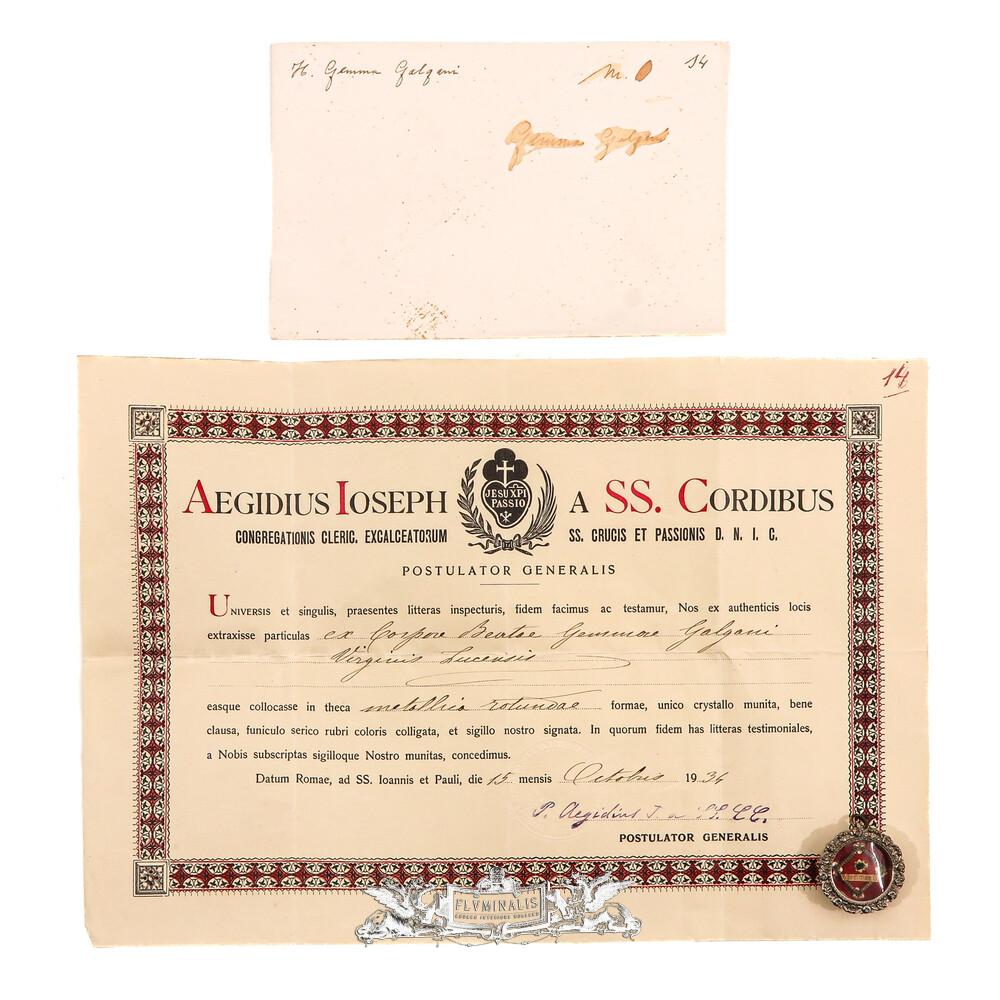 H. Gemma Galgani
M. 14
Gemma Galgani
14
AEGIDIUS IOSEPH A SS. CORDIBUS
JESU XPI
PASSIO
CONGREGATIONIS CLERIC. EXCALCEATORUM SS. CRUCIS ET PASSIONIS D. N. I. C.
POSTULATOR GENERALIS
UNIVERSIS et singulis, praesentes litteras inspecturis, fidem facimus ac testamur, Nos ex authenticis locis
extraxisse particulas ex Corpore Beatae Gemmae Galgani
Virginis Lucensis
easque collocasse in theca metallica rotundae formae, unico crystallo munita, bene
clausa, funiculo serico rubri coloris colligata, et sigillo nostro signata. In quorum fidem has litteras testimoniales,
a Nobis subscriptas sigilloque Nostro munitas, concedimus.
Datum Romae, ad SS. Ioannis et Pauli, die 15 mensis Octobris 1934
P. Aegidius J. a SS. CC.
POSTULATOR GENERALIS
FLVMINALIS